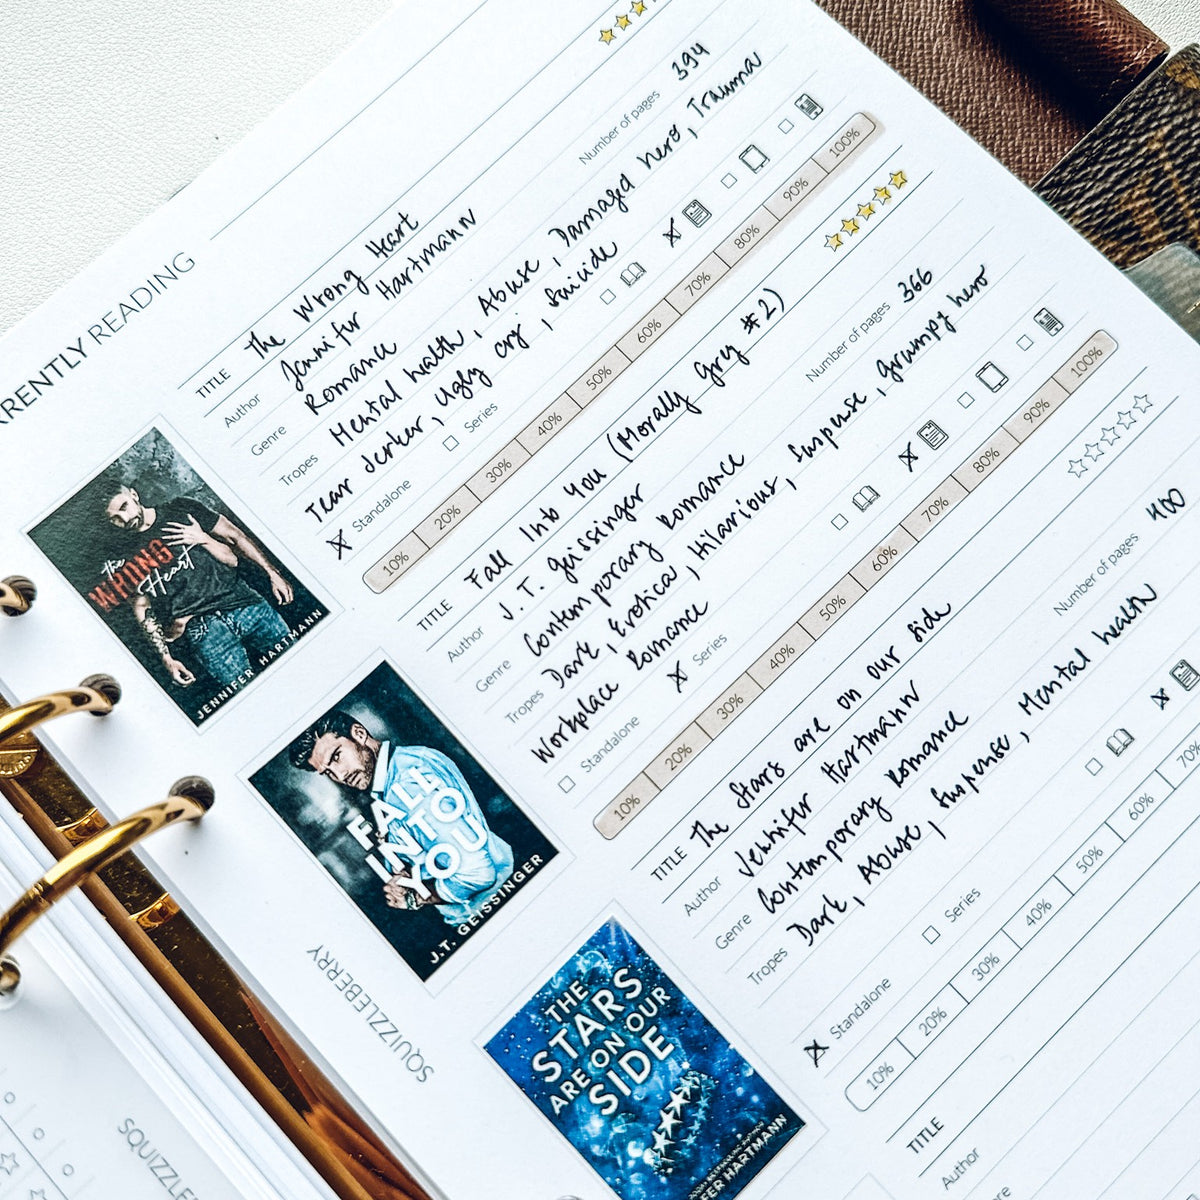 RRENTLY READING
TITLE The Wrong Heart
Author Jennifer Hartmann
Genre Romance Number of pages 394
Tropes Mental health, Abuse, Damaged hero, Trauma
Tear Jerker, Ugly cry, Suicide
Standalone Series
10% 20% 30% 40% 50% 60% 70% 80% 90% 100%
the
WRONG
Heart
JENNIFER HARTMANN
TITLE Fall Into You (Morally Grey #2)
Author J. T. Geissinger
Genre Contemporary Romance Number of pages 366
Tropes Dark, Erotica, Hilarious, Suspense, grumpy hero
Workplace Romance
Standalone Series
10% 20% 30% 40% 50% 60% 70% 80% 90% 100%
FALL
INTO
YOU
J.T. GEISSINGER
TITLE The Stars are on our side
Author Jennifer Hartmann
Genre Contemporary Romance Number of pages 400
Tropes Dark, Abuse, Suspense, Mental health
Standalone Series
10% 20% 30% 40% 50% 60% 70%
THE
STARS
ARE ON OUR
SIDE
FER HARTMANN
TITLE
Author
SQUIZZLEBERRY
SQUIZZLE